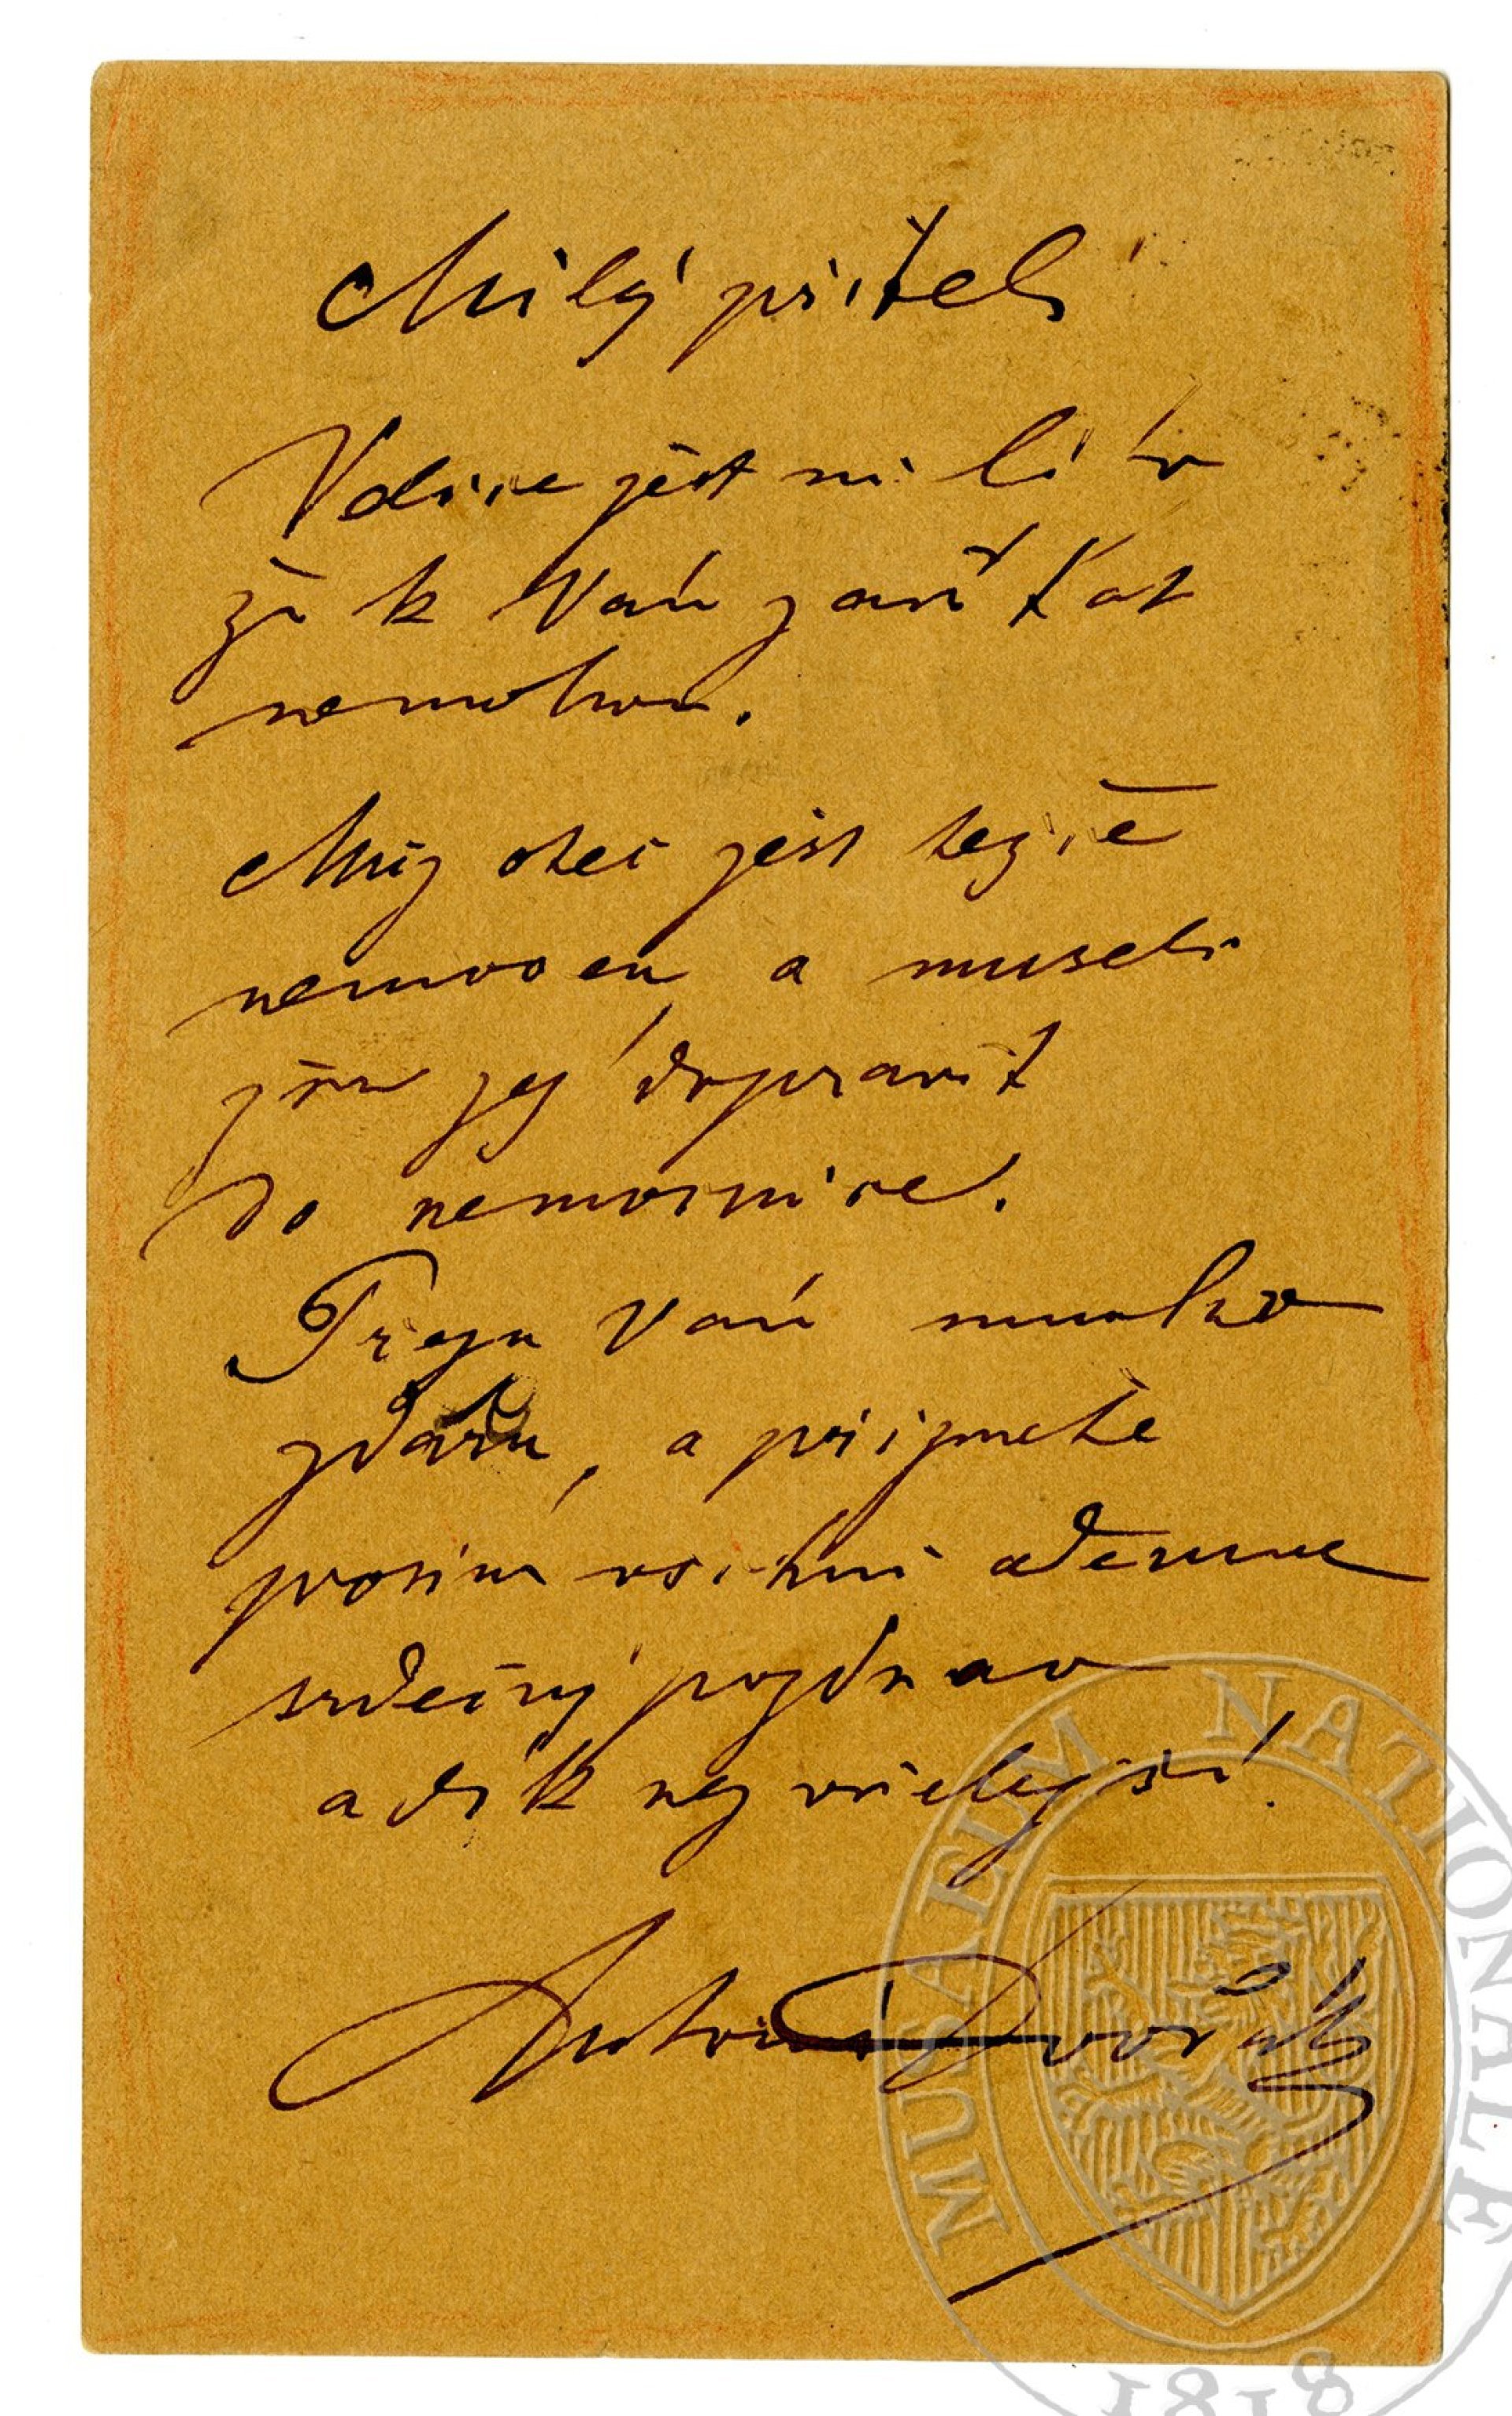 Milý příteli
Velice jest mi líto
že k Vám zavítat
nemohu.
Můj otec jest težce
nemocen a museli
jsme jej dopravit
do nemocnice.
Přeju Vám mnoho
zdaru, a přijmete
prosím všichni odemne
srdečný pozdrav
a dík nejvřelejší.
Antonín Dvořák
MUSAEUM NATIONALE
1818